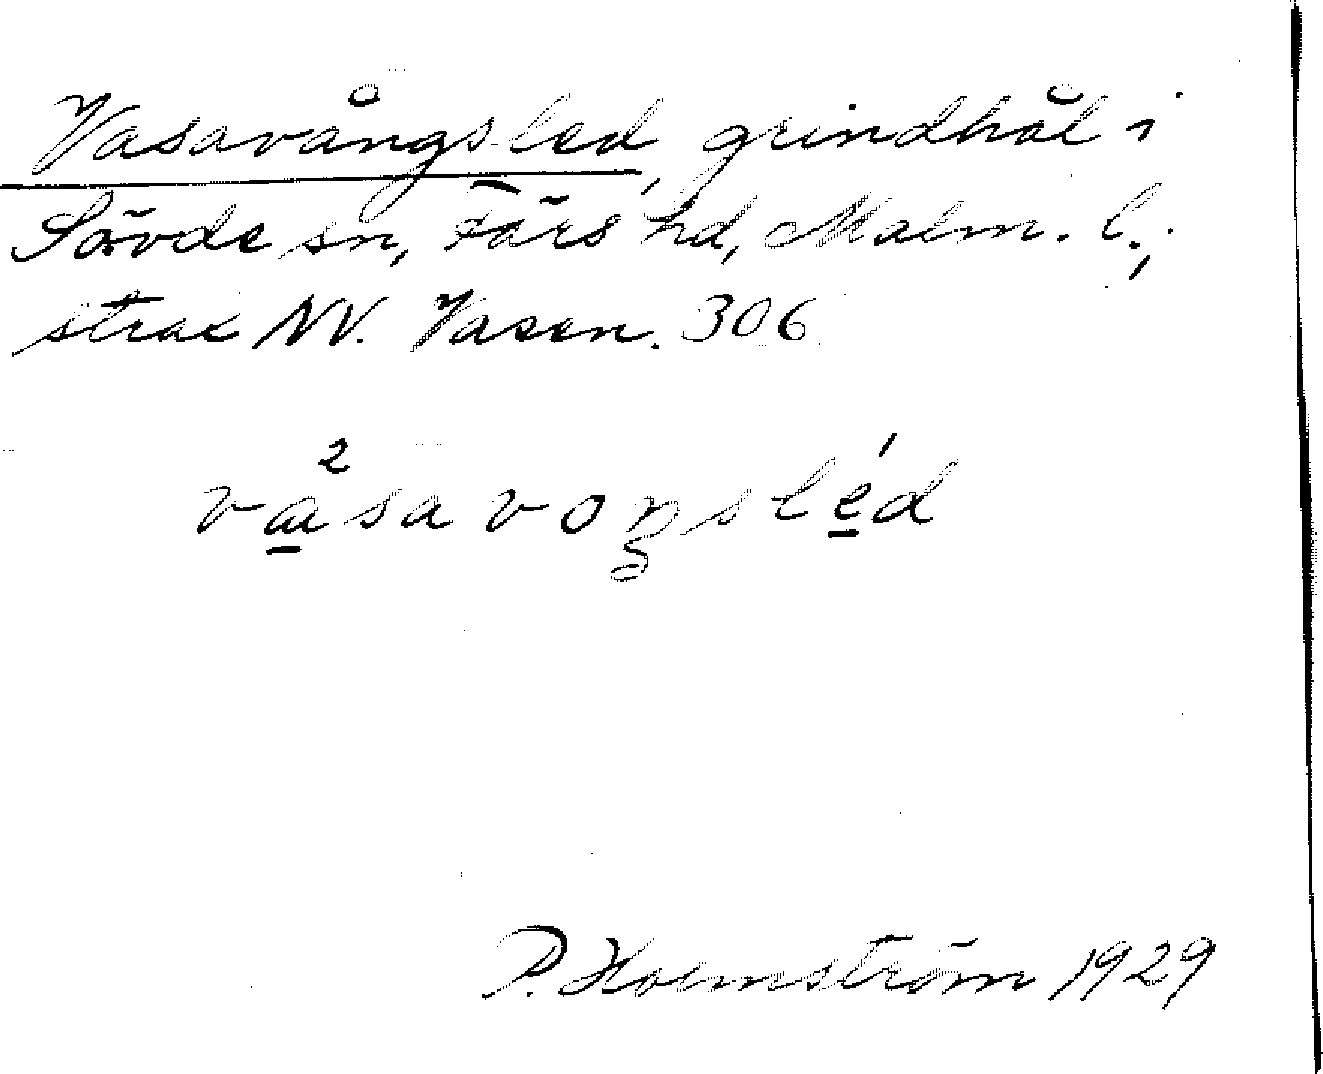 Vasavångsled, grindhål i
Sövde sn, Färs hd, Malm. l.;
strax NV. Vasen. 306
va²savoŋsle´d
P. Holmström 1929